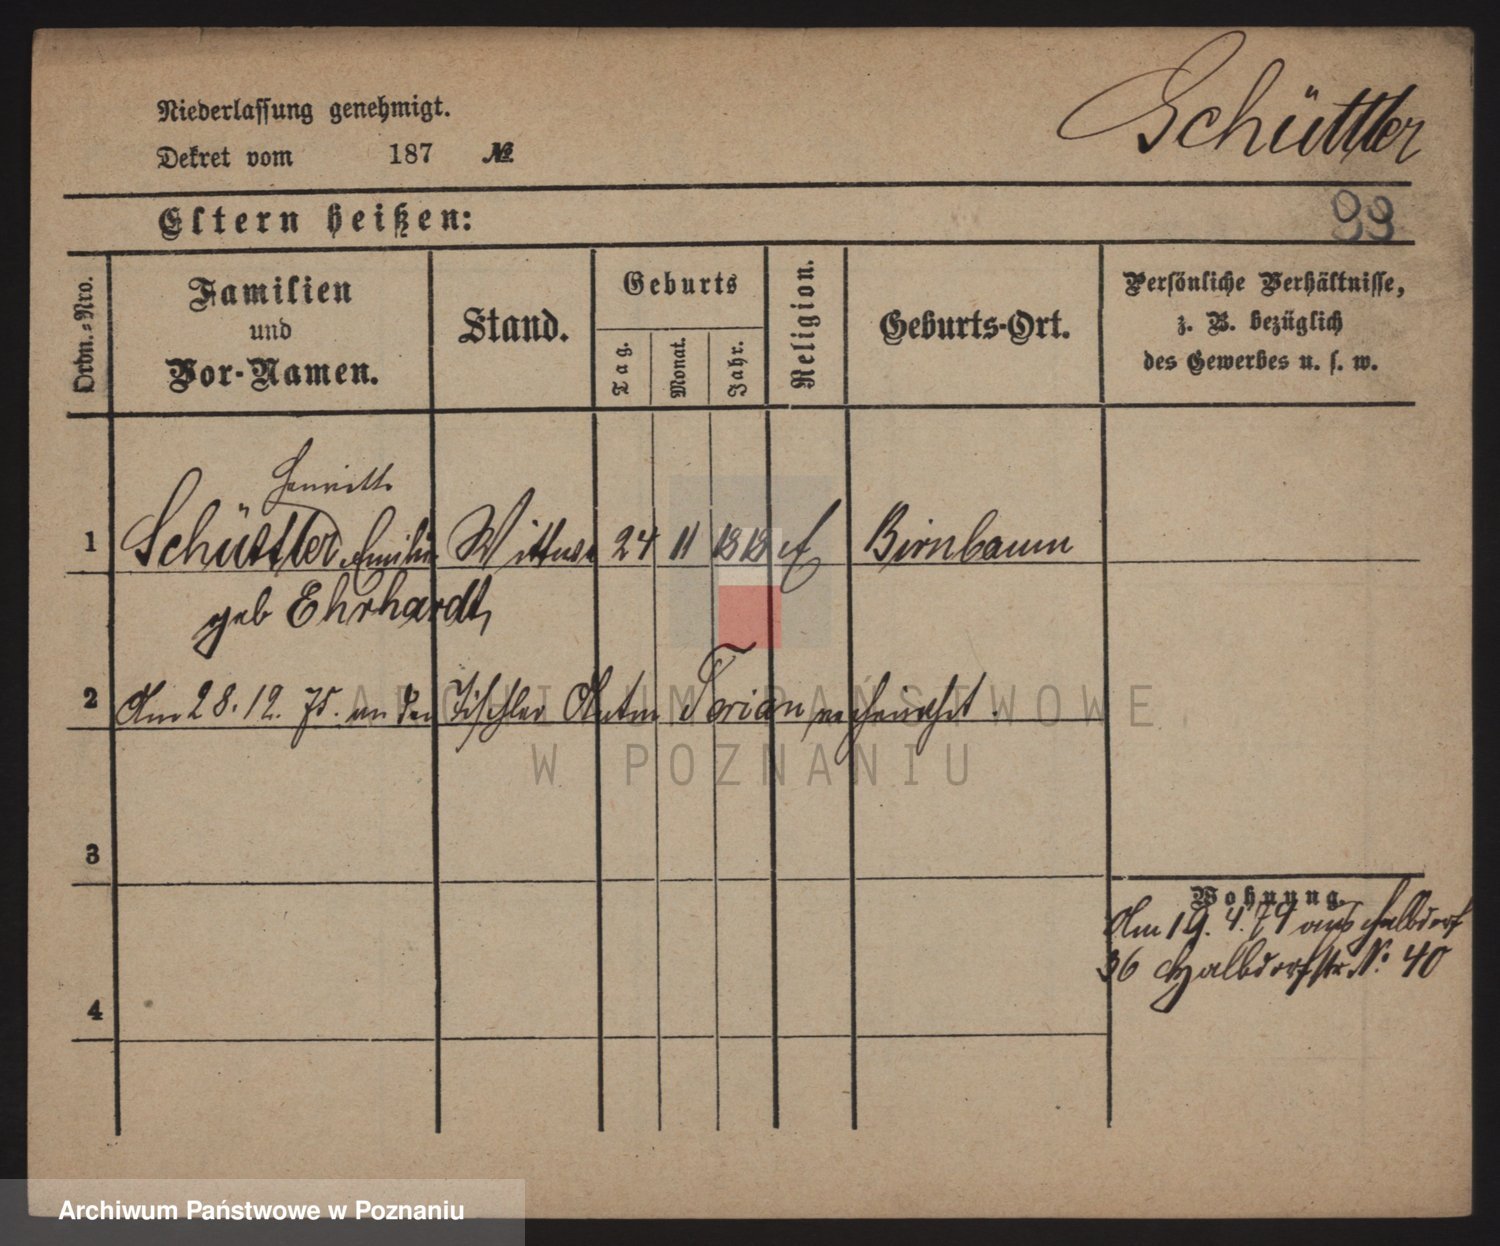 Niederlassung genehmigt.
Schüttler
Dekret vom 187 №
Eltern heißen:
99
Ordn.-Nro.
Familien und Vor-Namen.
Stand.
Geburts
Tag.
Monat.
Jahr.
Religion.
Geburts-Ort.
Persönliche Verhältnisse,
z. B. bezüglich
des Gewerbes u. s. w.
Henriette
1 Schüttler Emilie Wittwe 24 11 1818 ev Birnbaum
geb Ehrhardt,
2 Am 28. 12. 75. an den Tischler Anton Florian verheirathet.
ARCHIWUM PAŃSTWOWE
W POZNANIU
3
Wohnung.
Am 19. 4. 79 aus Halbdorf
36 Halbdorfstr. No 40
4
Archiwum Państwowe w Poznaniu